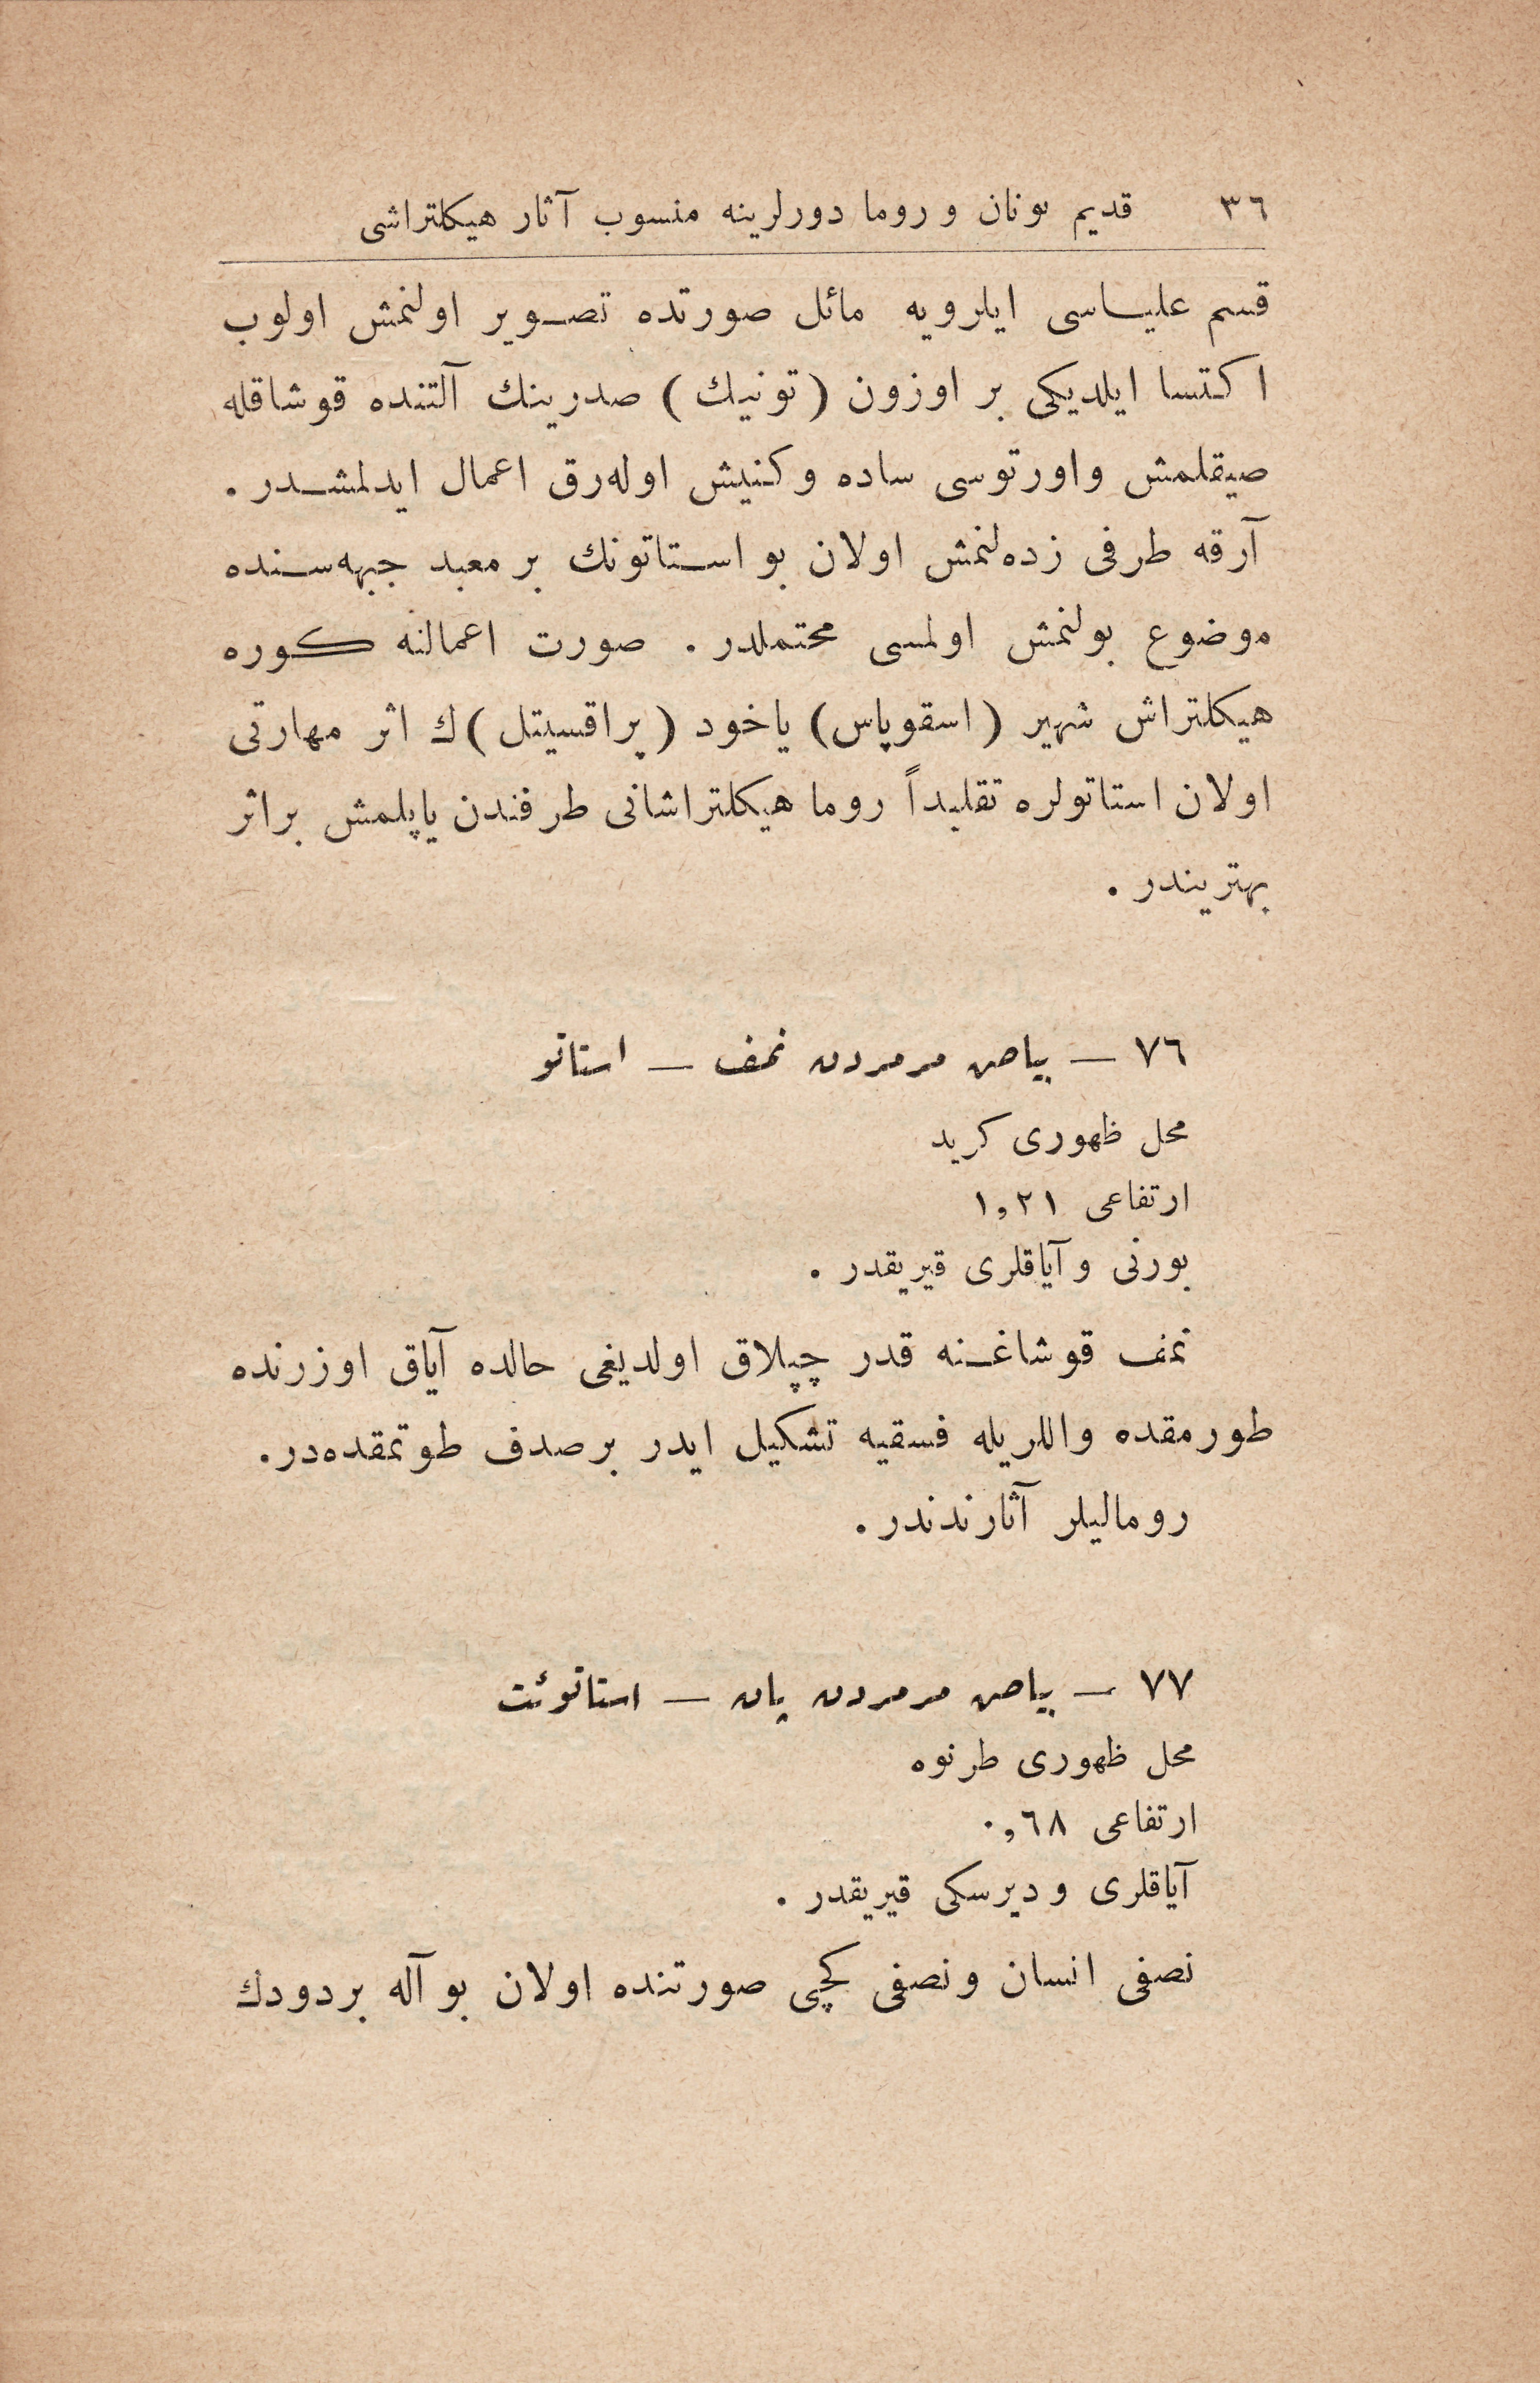 ٣٦ قديم يونان و روما دورلرينه منسوب آثار هيكلتراشى
قسم علياسى ايلرويه مائل صورتده تصوير اولنمش اولوب
اكتسا ايلديكى بر اوزون (تونيك) صدرينك آلتنده قوشاقله
صيقلمش واورتوسى ساده وكنيش اوله‌رق اعمال ايدلمشدر .
آرقه طرفى زده‌لنمش اولان بو استاتونك بر معبد جبهه‌سنده
موضوع بولنمش اولمسى محتملدر . صورت اعمالنه كوره
هيكلتراش شهير (اسقوپاس) ياخود (پراقسيتل)ك اثر مهارتى
اولان استاتولره تقليداً روما هيكلتراشانى طرفندن ياپلمش براثر
بهتريندر .
٧٦ — بياض مرمردن نمف — استاتو
محل ظهورى كريد
ارتفاعى ١,٢١
بورنى و آياقلرى قيريقدر .
نمف قوشاغنه قدر چپلاق اولديغى حالده آياق اوزرنده
طورمقده واللريله فسقيه تشكيل ايدر برصدف طوتمقده‌در.
روماليلر آثارندندر .
٧٧ — بياض مرمردن پان — استاتوئت
محل ظهورى طرنوه
ارتفاعى ٠,٦٨
آياقلرى و ديرسكى قيريقدر .
نصفى انسان ونصفى كچى صورتنده اولان بو آله بردودك